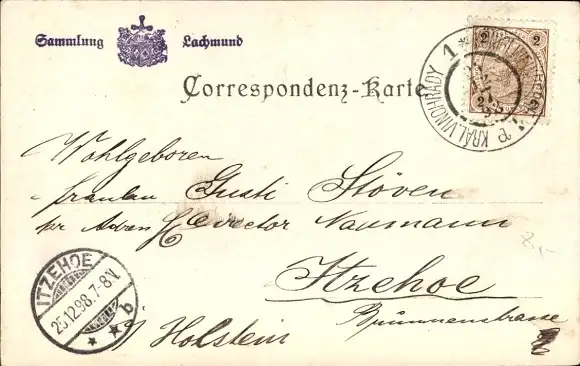 Sammlung Lachmund
Correspondenz-Karte
2 2
2 2
1 * KRÁL. VINOHRADY
Wohlgeboren
Fraulau Gusti Stöven
pr Adren Director Naumann
Itzehoe
Brunnenstrasse
i/ Holstein
ITZEHOE
25.12.98.7-8V.
* * b